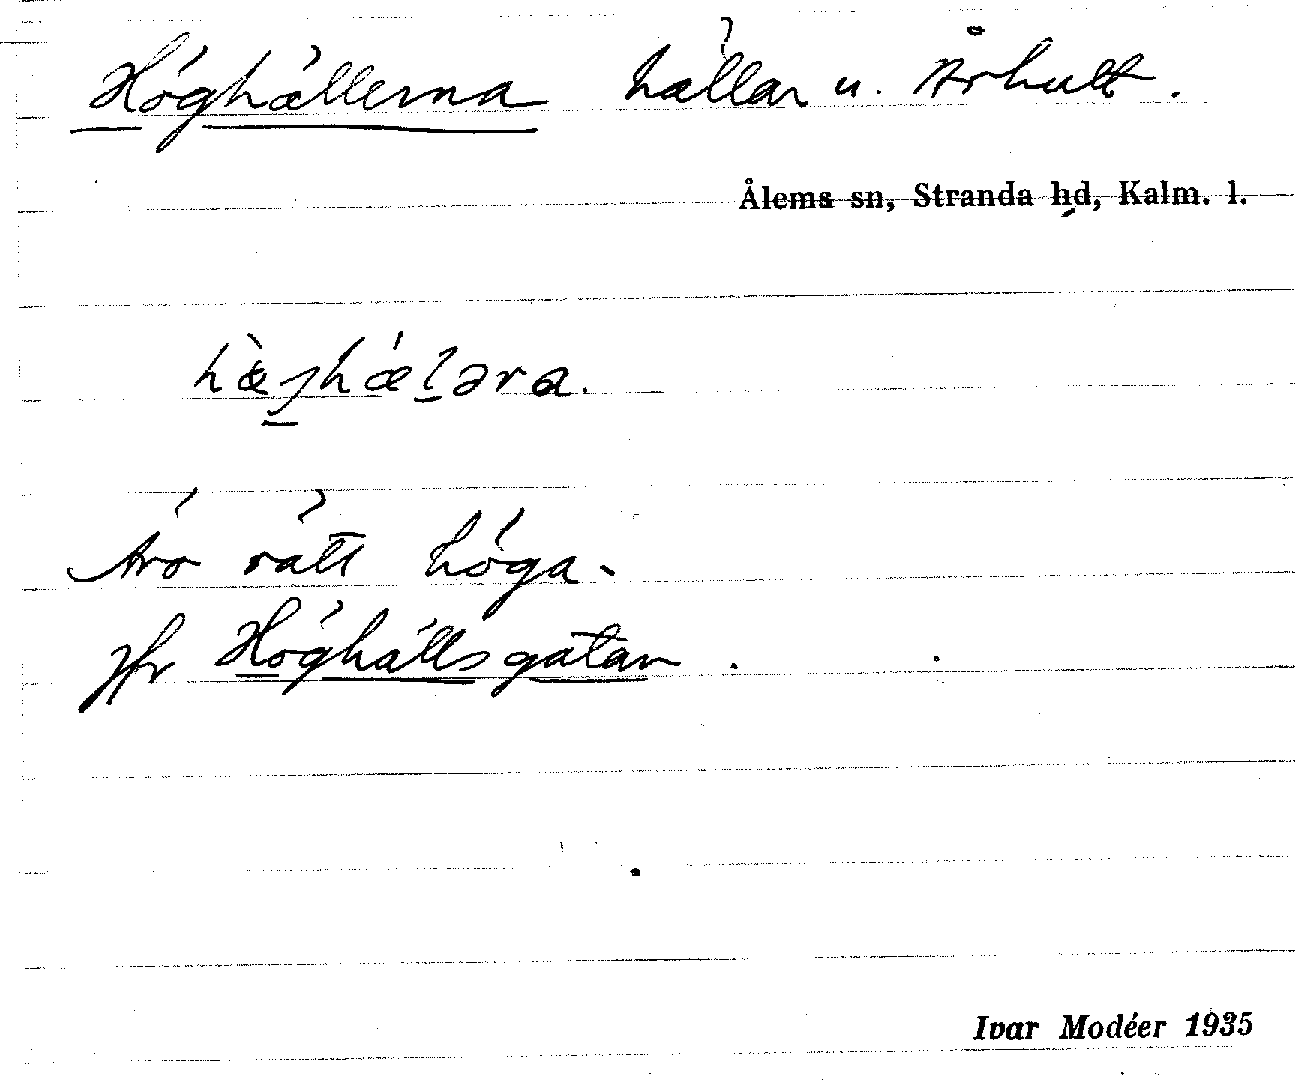 Höghällerna hällar u. Århult.
Ålems sn, Stranda hd, Kalm. l.
Äro rätt höga.
Jfr Höghällsgatan.
Ivar Modéer 1935